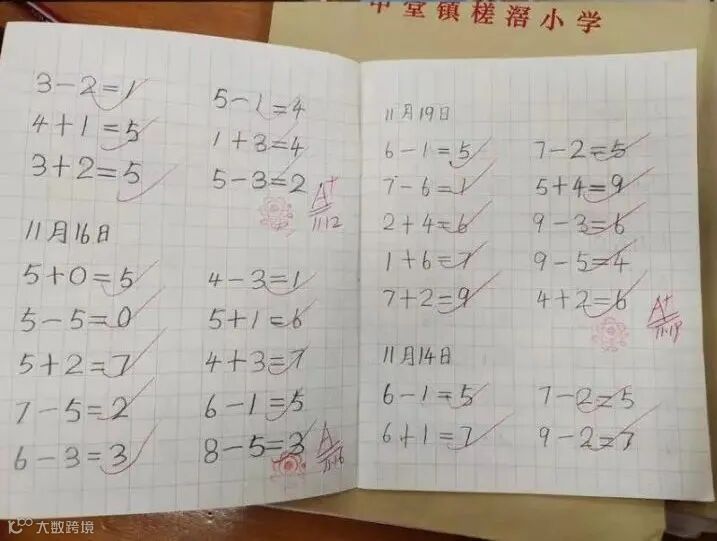 中堂镇槎滘小学
3-2=1
5-1=4
4+1=5
1+3=4
3+2=5
5-3=2
A+
11.12
11月16日
5+0=5
4-3=1
5-5=0
5+1=6
5+2=7
4+3=7
7-5=2
6-1=5
6-3=3
8-5=3
A
11.16
11月19日
6-1=5
7-2=5
7-6=1
5+4=9
2+4=6
9-3=6
1+6=7
9-5=4
7+2=9
4+2=6
A+
11.19
11月14日
6-1=5
7-2=5
6+1=7
9-2=7
大数跨境